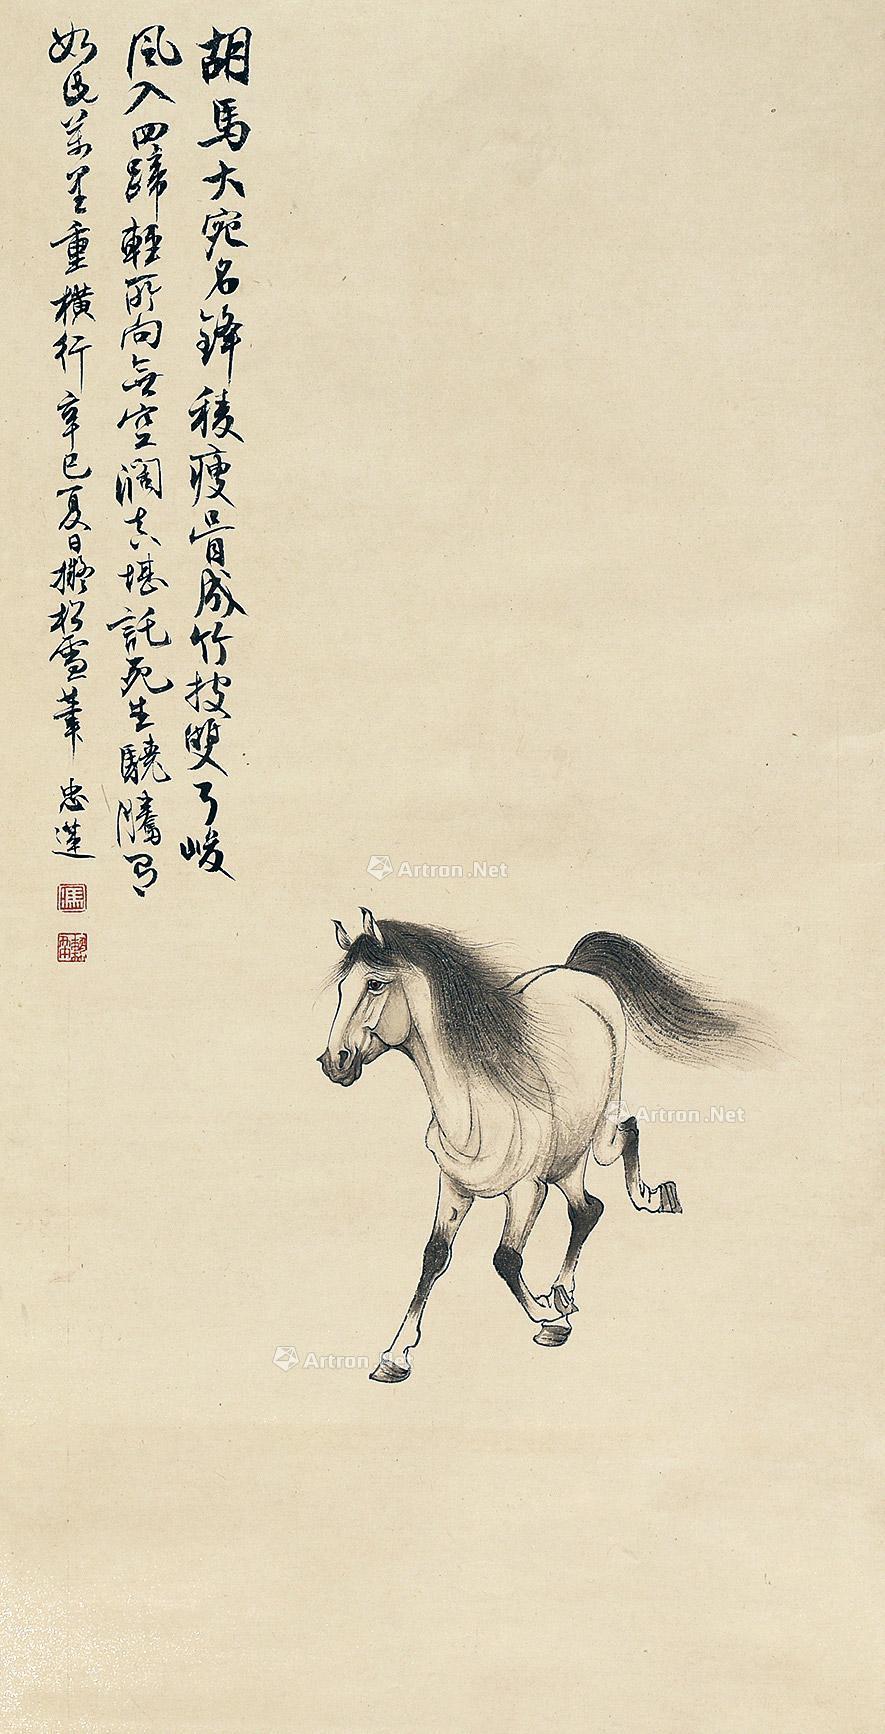 胡馬大宛名鋒稜瘦骨成竹披雙耳峻
風入四蹄輕所向無空濶真堪託死生驍騰有
如此萬里重橫行辛巳夏日擬松雪筆 忠蓮
Artron.Net
Artron.Net
Artron.Net